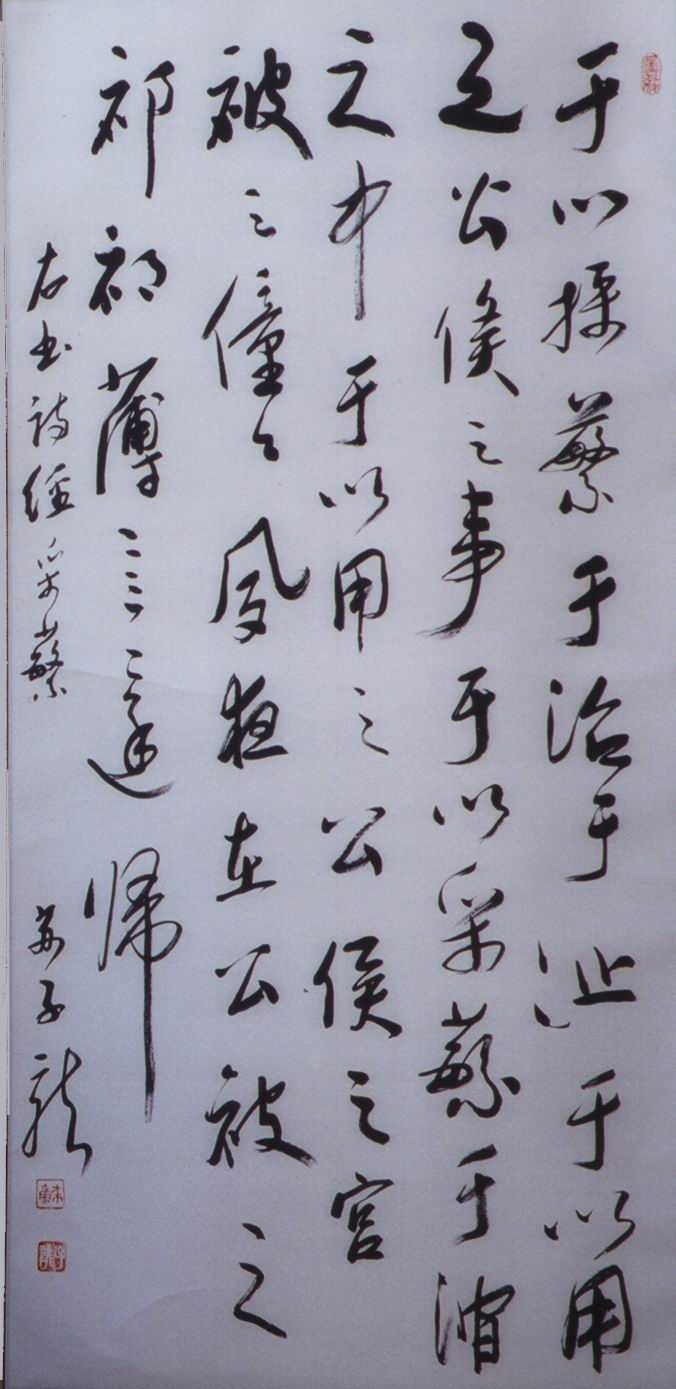 于以採蘩于沼于沚于以用
之公侯之事于以采蘩于澗
之中于以用之公侯之宮
被之僮々夙夜在公被之
祁祁薄言還歸
右书诗经采蘩
苏子龙